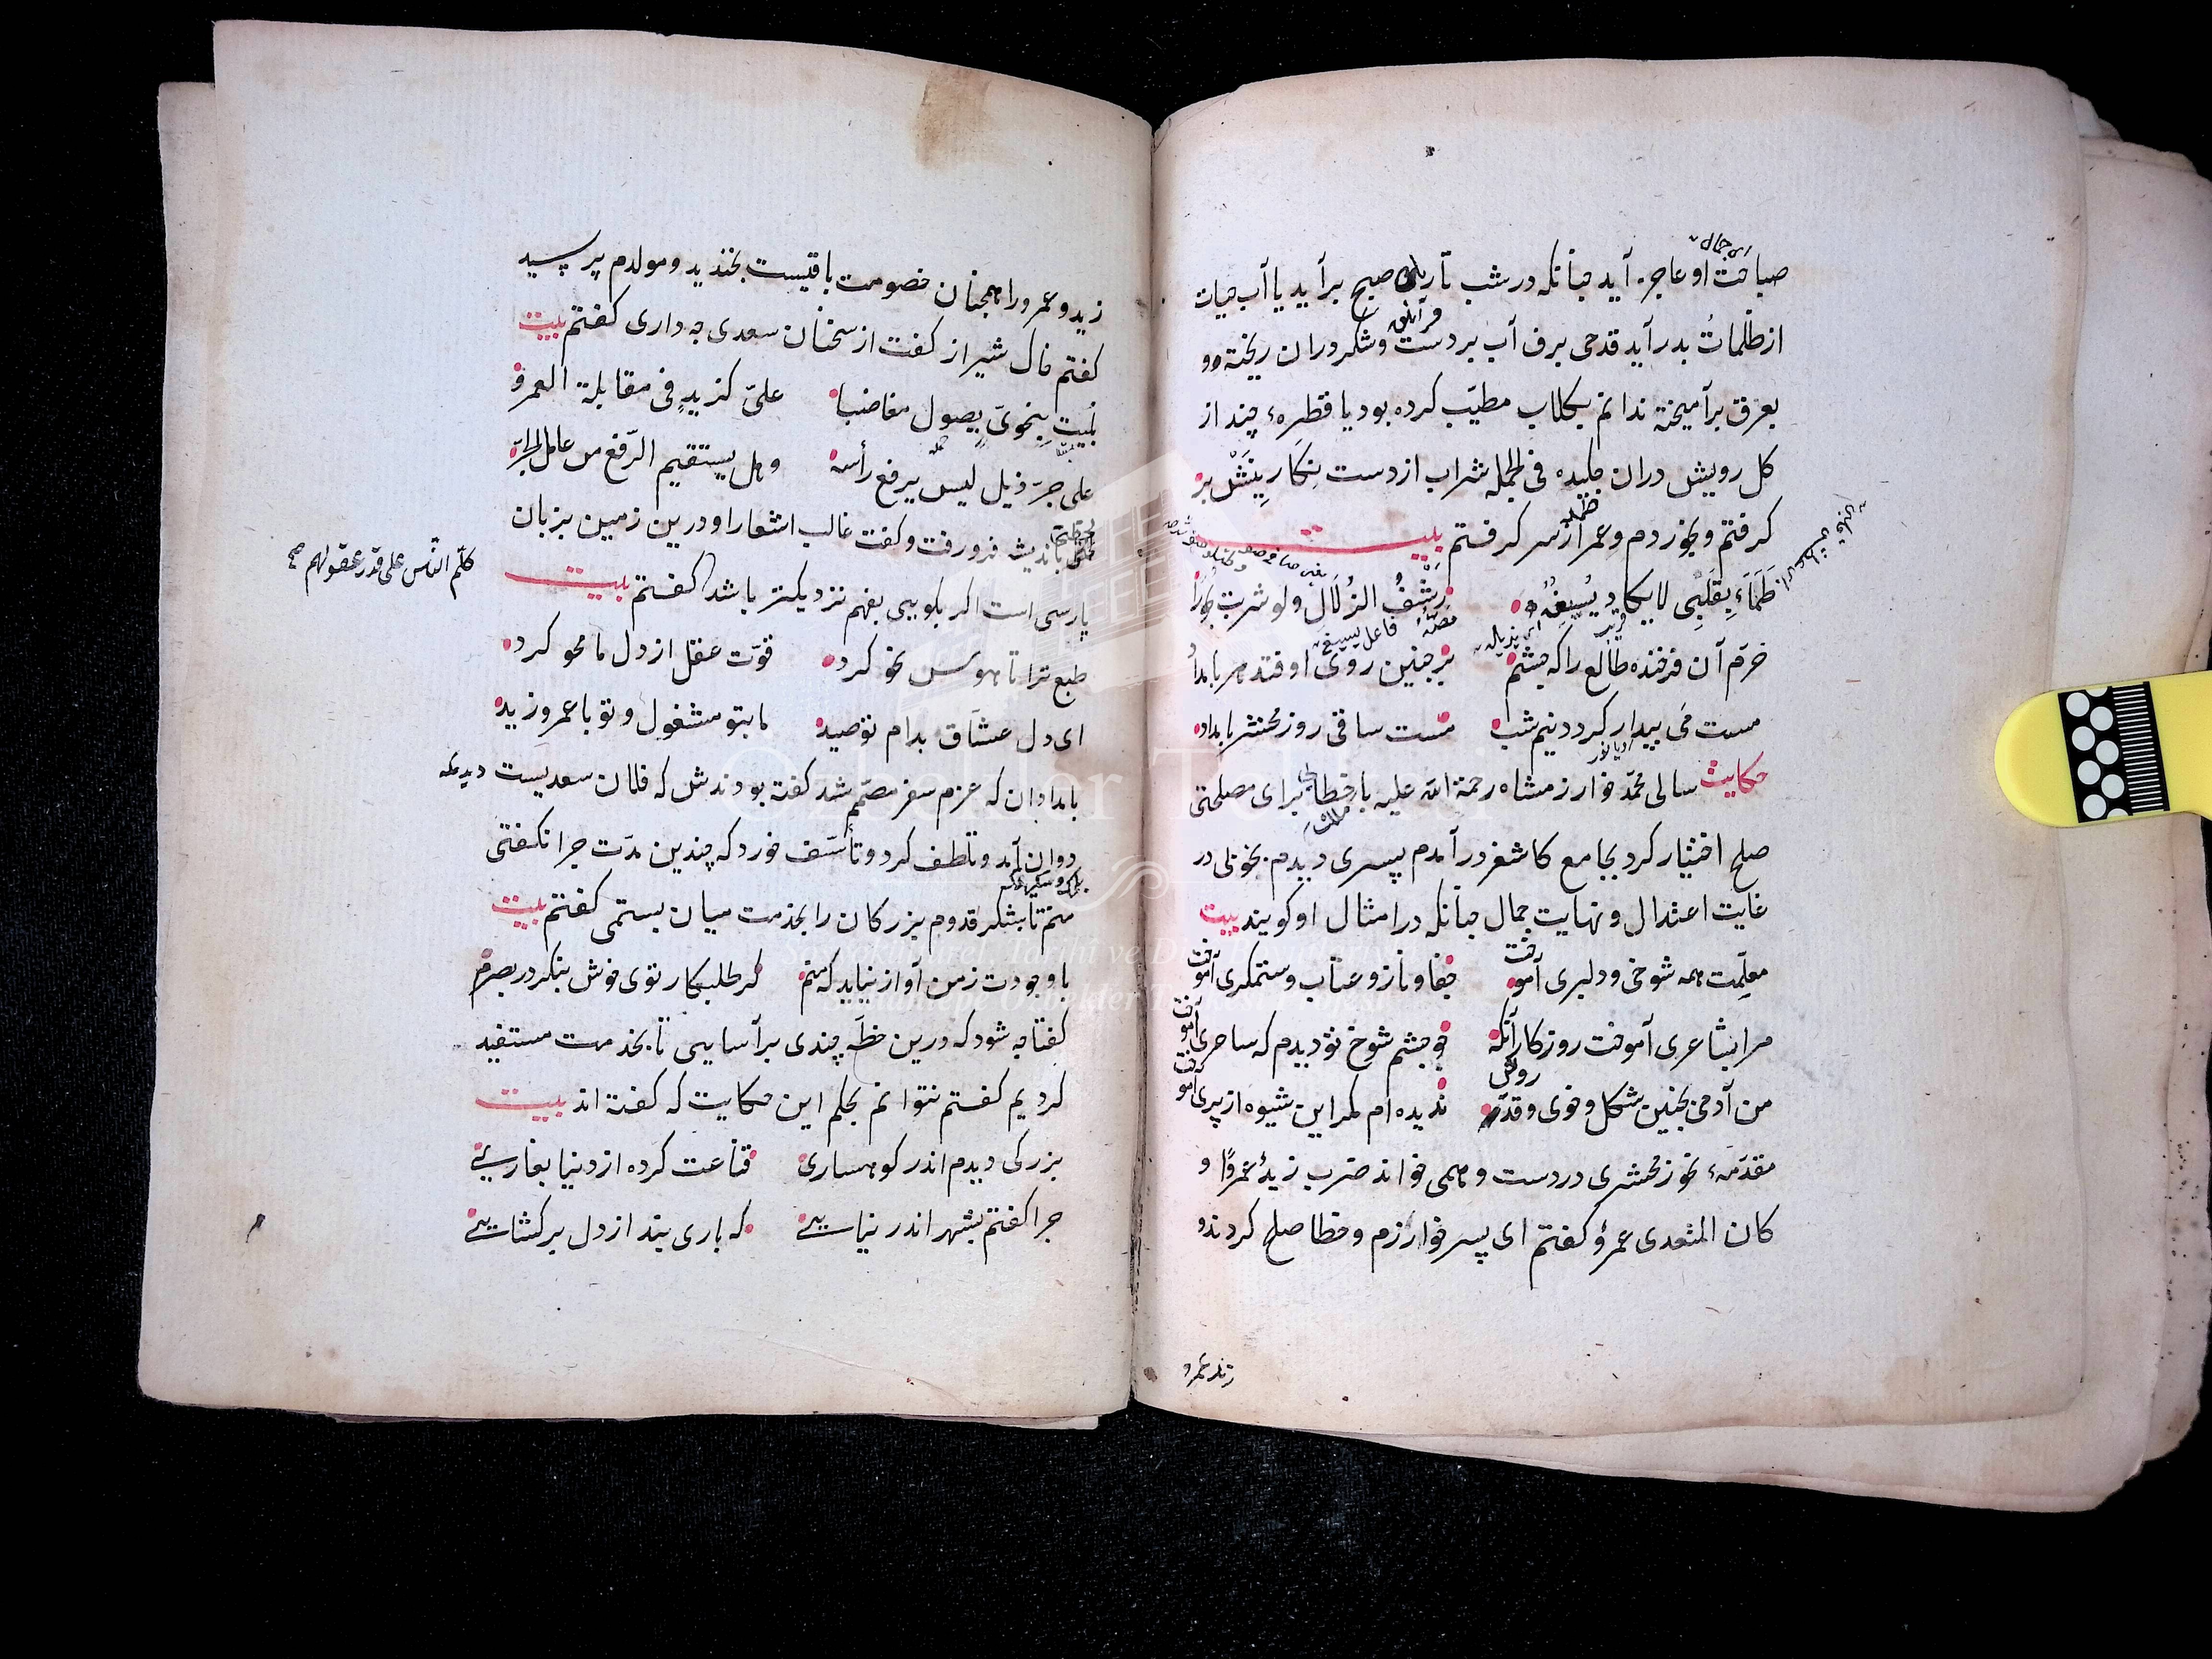 صباحت او عاجز آید چنانکه در شب تاریکی صبح برآید یا آب حیات
از ظلمات بدر آید قدحی برف آب بر دست و شکر در آن ریخته و
بعرق برآمیخته ندانم بگلاب مطیّب کرده بود یا قطرهء چند از
کل رویش دران چکیده فی الجمله شراب از دست نکارینش بر
کرفتم و بخوردم و عمر از سر کرفتم بیت
ظَمَاءٌ بِقَلبِی لا یکاد یُسیغُهُ رَشفُ الزُلَالِ ولو شربت بحورا
خرّم آن فرخنده طالع را که چشم بر چنین روی اوفتد هر بامداد
مست می بیدار کردد نیم شب مست ساقی روز محشر بامداد
حکایت سالی محمّد خوارزمشاه رحمة الله علیه با خطا برای مصلحتی
صلح اختیار کرد بجامع کاشغر درآمدم پسری دیدم بخوبی در
غایت اعتدال و نهایت جمال چنانکه در امثال او کویند بیت
معلّمت همه شوخی و دلبری آموخت جفا و ناز و عتاب و ستمکری آموخت
مرا بشاعری آموخت روزکار آنکه که چشم شوخ تو دیدم که ساحری آموخت
من آدمی بچنین شکل و خوی و قد و روش ندیده ام مکر این شیوه از پری آموخت
مقدّمهء نحو زمخشری در دست و همی خواند ضرب زیدٌ عمروًا و
کان المتعدی عمروٌ کفتم ای پسر خوارزم و خطا صلح کردند و
زید و عمرو
زید و عمرو را همچنان خصومت باقیست بخندید و مولدم پرسید
کفتم خاک شیراز کفت از سخنان سعدی چه داری کفتم بیت
بُلیتُ بنحویٍّ یصول مغاضبا علیّ کزیدٍ فی مقابلة العمرو
علی جرّ ذیل لیس یرفع رأسه وهل یستقیم الرّفع من عامل الجرّ
لختی باندیشه فرو رفت و کفت غالب اشعار او درین زمین بزبان
پارسی است اکر بکویی بفهم نزدیکتر باشد کفتم بیت
کلّم النّاس علی قدر عقولهم صح
طبع ترا تا هوس نحو کرد قوّت عقل از دل ما محو کرد
ای دل عشّاق بدام تو صید ما بتو مشغول و تو با عمرو زید
بامدادان که عزم سفر مصمّم شد کفته بودندش که فلان سعدیست دیدمکه
دوان آمد و تلطف کرد و تأسّف خورد که چندین مدّت چرا نکفتی
منم تا بشکر قدوم بزرکان را بخدمت میان بستمی کفتم بیت
با وجودت ز من آواز نیاید که منم
کفتا چه شود که درین خطّه چندی برآسایی تا بخدمت مستفید
کردیم کفتم نتوانم بحکم این حکایت که کفته اند بیت
بزرکی دیدم اندر کوهساری قناعت کرده از دنیا بغاری
چرا کفتم بشهر اندر نیایی که باری بند از دل برکشایی